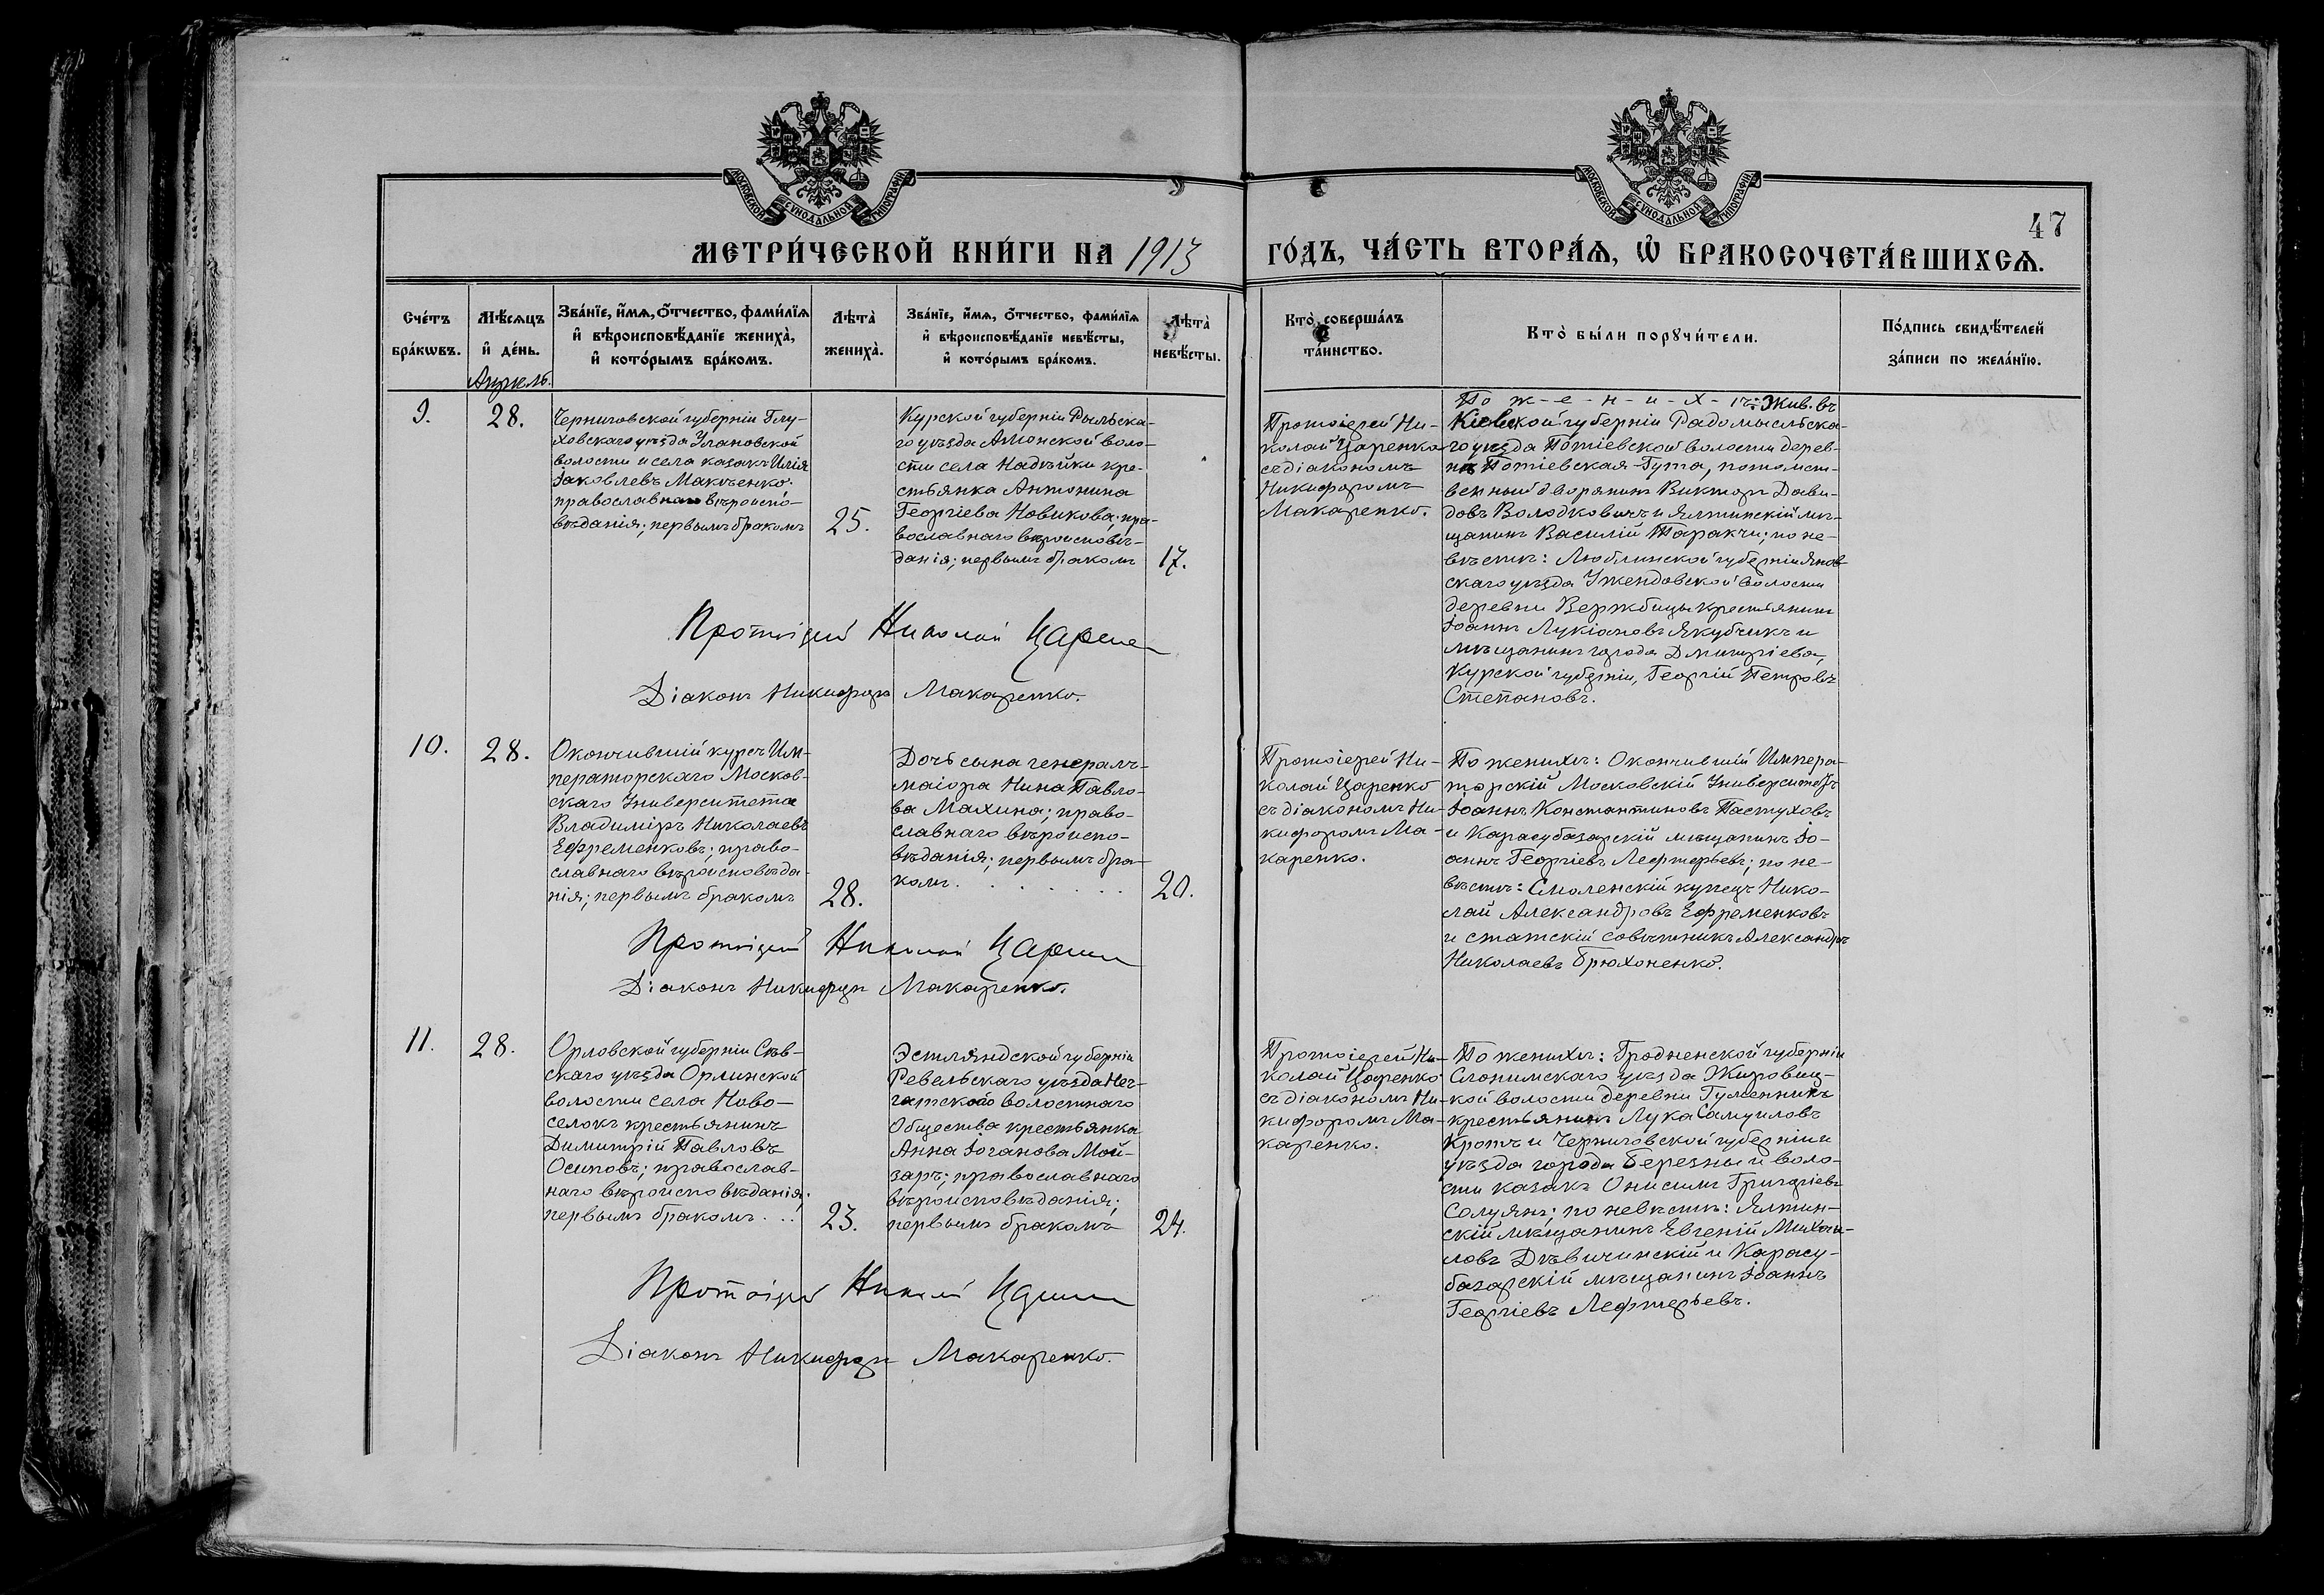 МОСКОВСКОЙ СѴНОДАЛЬНОЙ ТИПОГРАФІИ
МОСКОВСКОЙ СѴНОДАЛЬНОЙ ТИПОГРАФІИ
47
МЕТРИ́ЧЕСКОЙ КНИ́ГИ НА 1913
ГО́ДЪ, ЧА́СТЬ ВТОРА́Ѧ, Ѽ БРАКОСОЧЕТА́ВШИХСѦ.
Сче́тъ
бра́кѡвъ.
Мѣ́сѧцъ
и҆ де́нь.
Зва́нїе, и҆́мѧ, ѻ҆́тчество, фами́лїѧ
и҆ вѣроисповѣ́данїе жениха̀,
и҆ кото́рымъ бра́комъ.
Лѣта̀
жениха̀.
Зва́нїе, и҆́мѧ, ѻ҆́тчество, фами́лїѧ
и҆ вѣроисповѣ́данїе невѣ́сты,
и҆ кото́рымъ бра́комъ.
Лѣта̀
невѣ́сты.
Кто̀ соверша́лъ
та́инство.
Кто̀ бы́ли порꙋчи́тели.
По́дпись свидѣ́телей
за́писи по жела́нїю.
Апрель.
9.
28.
Черниговской губерніи Глу-
ховскаго уѣзда Улановской
волости и села казакъ Илія
Іаковлевъ Макченко;
православнаго вѣроиспо-
вѣданія; первымъ бракомъ
25.
Курской губерніи Рыльска-
го уѣзда Амонской воло-
сти села Надѣйки кре-
стьянка Антонина
Георгіева Новикова; пра-
вославнаго вѣроисповѣ-
данія; первымъ бракомъ
17.
Протоіерей Ни-
колай Царенко
съ діакономъ
Никифоромъ
Макаренко.
По ж-е-н-и-х-ѣ: Жив. въ
Кіевской губерніи Радомысльска-
го уѣзда Потіевской волости дерев-
нѣ Потіевская-Гута, потомст-
венный дворянинъ Викторъ Дави-
довъ Володковичъ и Ялтинскій мѣ-
щанинъ Василій Таракчи; по не-
вѣстѣ: Люблинской губерніи Янов-
скаго уѣзда Ужендовской волости
деревни Вержбицы крестьянинъ
Іоаннъ Лукіановъ Якубчикъ и
мѣщанинъ города Дмитріева,
Курской губерніи, Георгій Петровъ
Степановъ.
Протоіерей Николай Царенко
Діаконъ Никифоръ Макаренко.
10.
28.
Окончившій курсъ Им-
ператорскаго Москов-
скаго Университета
Владиміръ Николаевъ
Ефременковъ; право-
славнаго вѣроисповѣда-
нія; первымъ бракомъ
28.
Дочь сына генералъ-
маіора Нина Павло-
ва Махина; право-
славнаго вѣроиспо-
вѣданія; первымъ бра-
комъ. . . . . . .
20.
Протоіерей Ни-
колай Царенко
съ діакономъ Ни-
кифоромъ Ма-
каренко.
По женихѣ: Окончившій Импера-
торскій Московскій Университетъ
Іоаннъ Константиновъ Пастуховъ
и Карасубазарскій мѣщанинъ Іо-
аннъ Георгіевъ Лефтерьевъ; по не-
вѣстѣ: Смоленскій купецъ Нико-
лай Александровъ Ефременковъ
и статскій совѣтникъ Александръ
Николаевъ Брюхоненко.
Протоіерей Николай Царенко
Діаконъ Никифоръ Макаренко.
11.
28.
Орловской губерніи Сѣв-
скаго уѣзда Орлинской
волости села Ново-
селокъ крестьянинъ
Димитрій Павловъ
Осиповъ; православ-
наго вѣроисповѣданія;
первымъ бракомъ. ..
23.
Эстляндской губерніи
Ревельскаго уѣзда Нег-
гатскаго волостнаго
Общества крестьянка
Анна Іоганова Мой-
заръ; православнаго
вѣроисповѣданія;
первымъ бракомъ
24.
Протоіерей Ни-
колай Царенко
съ діакономъ Ни-
кифоромъ Ма-
каренко.
По женихѣ: Гродненской губерніи
Слонимскаго уѣзда Жировиц-
кой волости деревни Гуменникъ
крестьянинъ Лука Самуиловъ
Кротъ и Черниговской губерніи и
уѣзда города Березны и воло-
сти казакъ Онисимъ Григоріевъ
Солуянъ; по невѣстѣ: Ялтин-
скій мѣщанинъ Евгеній Михаи-
ловъ Дѣвичинскій и Карасу-
базарскій мѣщанинъ Іоаннъ
Георгіевъ Лефтерьевъ.
Протоіерей Николай Царенко
Діаконъ Никифоръ Макаренко.